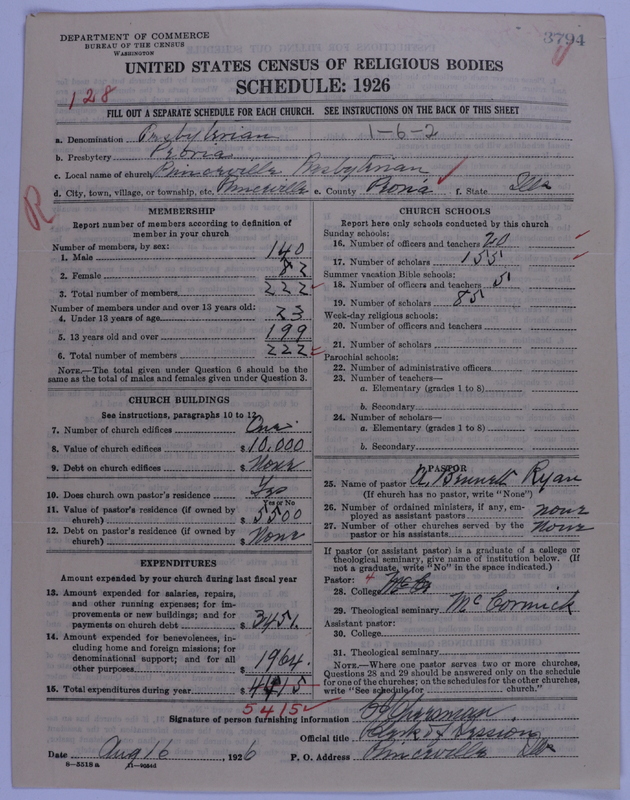 DEPARTMENT OF COMMERCE
BUREAU OF THE CENSUS
WASHINGTON
3794
UNITED STATES CENSUS OF RELIGIOUS BODIES
SCHEDULE: 1926
128
FILL OUT A SEPARATE SCHEDULE FOR EACH CHURCH. SEE INSTRUCTIONS ON THE BACK OF THIS SHEET
a. Denomination Presbyterian 1-6-2
b. Presbytery Peoria
c. Local name of church Princeville Presbyterian
d. City, town, village, or township, etc. Princeville e. County Peoria f. State Ills
R
MEMBERSHIP
Report number of members according to definition of
member in your church
Number of members, by sex:
1. Male 140
2. Female 82
3. Total number of members 222
Number of members under and over 13 years old:
4. Under 13 years of age 23
5. 13 years old and over 199
6. Total number of members 222
NOTE.—The total given under Question 6 should be
same as the total of males and females given under Question 3.
CHURCH BUILDINGS
See instructions, paragraphs 10 to 12
7. Number of church edifices One
8. Value of church edifices $10,000
9. Debt on church edifices $ None
10. Does church own pastor's residence Yes
Yes or No
11. Value of pastor's residence (if owned by
church) $ 5500
12. Debt on pastor's residence (if owned by
church) $ None
EXPENDITURES
Amount expended by your church during last fiscal year
13. Amount expended for salaries, repairs,
and other running expenses; for im-
provements or new buildings; and for
payments on church debt $ 3451.
14. Amount expended for benevolences, in-
cluding home and foreign missions; for
denominational support; and for all
other purposes $ 1964.
15. Total expenditures during year $ 4415
5415
CHURCH SCHOOLS
Report here only schools conducted by this church
Sunday schools:
16. Number of officers and teachers 20
17. Number of scholars 155
Summer vacation Bible schools:
18. Number of officers and teachers 5
19. Number of scholars 85
Week-day religious schools:
20. Number of officers and teachers
21. Number of scholars
Parochial schools:
22. Number of administrative officers
23. Number of teachers—
a. Elementary (grades 1 to 8)
b. Secondary
24. Number of scholars—
a. Elementary (grades 1 to 8)
b. Secondary
PASTOR
25. Name of pastor A. Bennett Ryan
(If church has no pastor, write "None")
26. Number of ordained ministers, if any, em-
ployed as assistant pastors none
27. Number of other churches served by the
pastor or his assistants None
If pastor (or assistant pastor) is a graduate of a college or
theological seminary, give name of institution below. (If
not a graduate, write "No" in the space indicated.)
Pastor: 4
28. College
29. Theological seminary McCormick
Assistant pastor:
30. College
31. Theological seminary
NOTE.—Where one pastor serves two or more churches,
Questions 28 and 29 should be answered only on the schedule
for one of the churches; on the schedules for the other churches,
write "See schedule for church."
Signature of person furnishing information
Official title Clerk of Session
Date Aug 16, 1926 P. O. Address Princeville Ills
8—5518 a